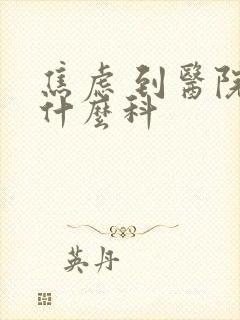 焦虑到醫院
什麼科
英丹